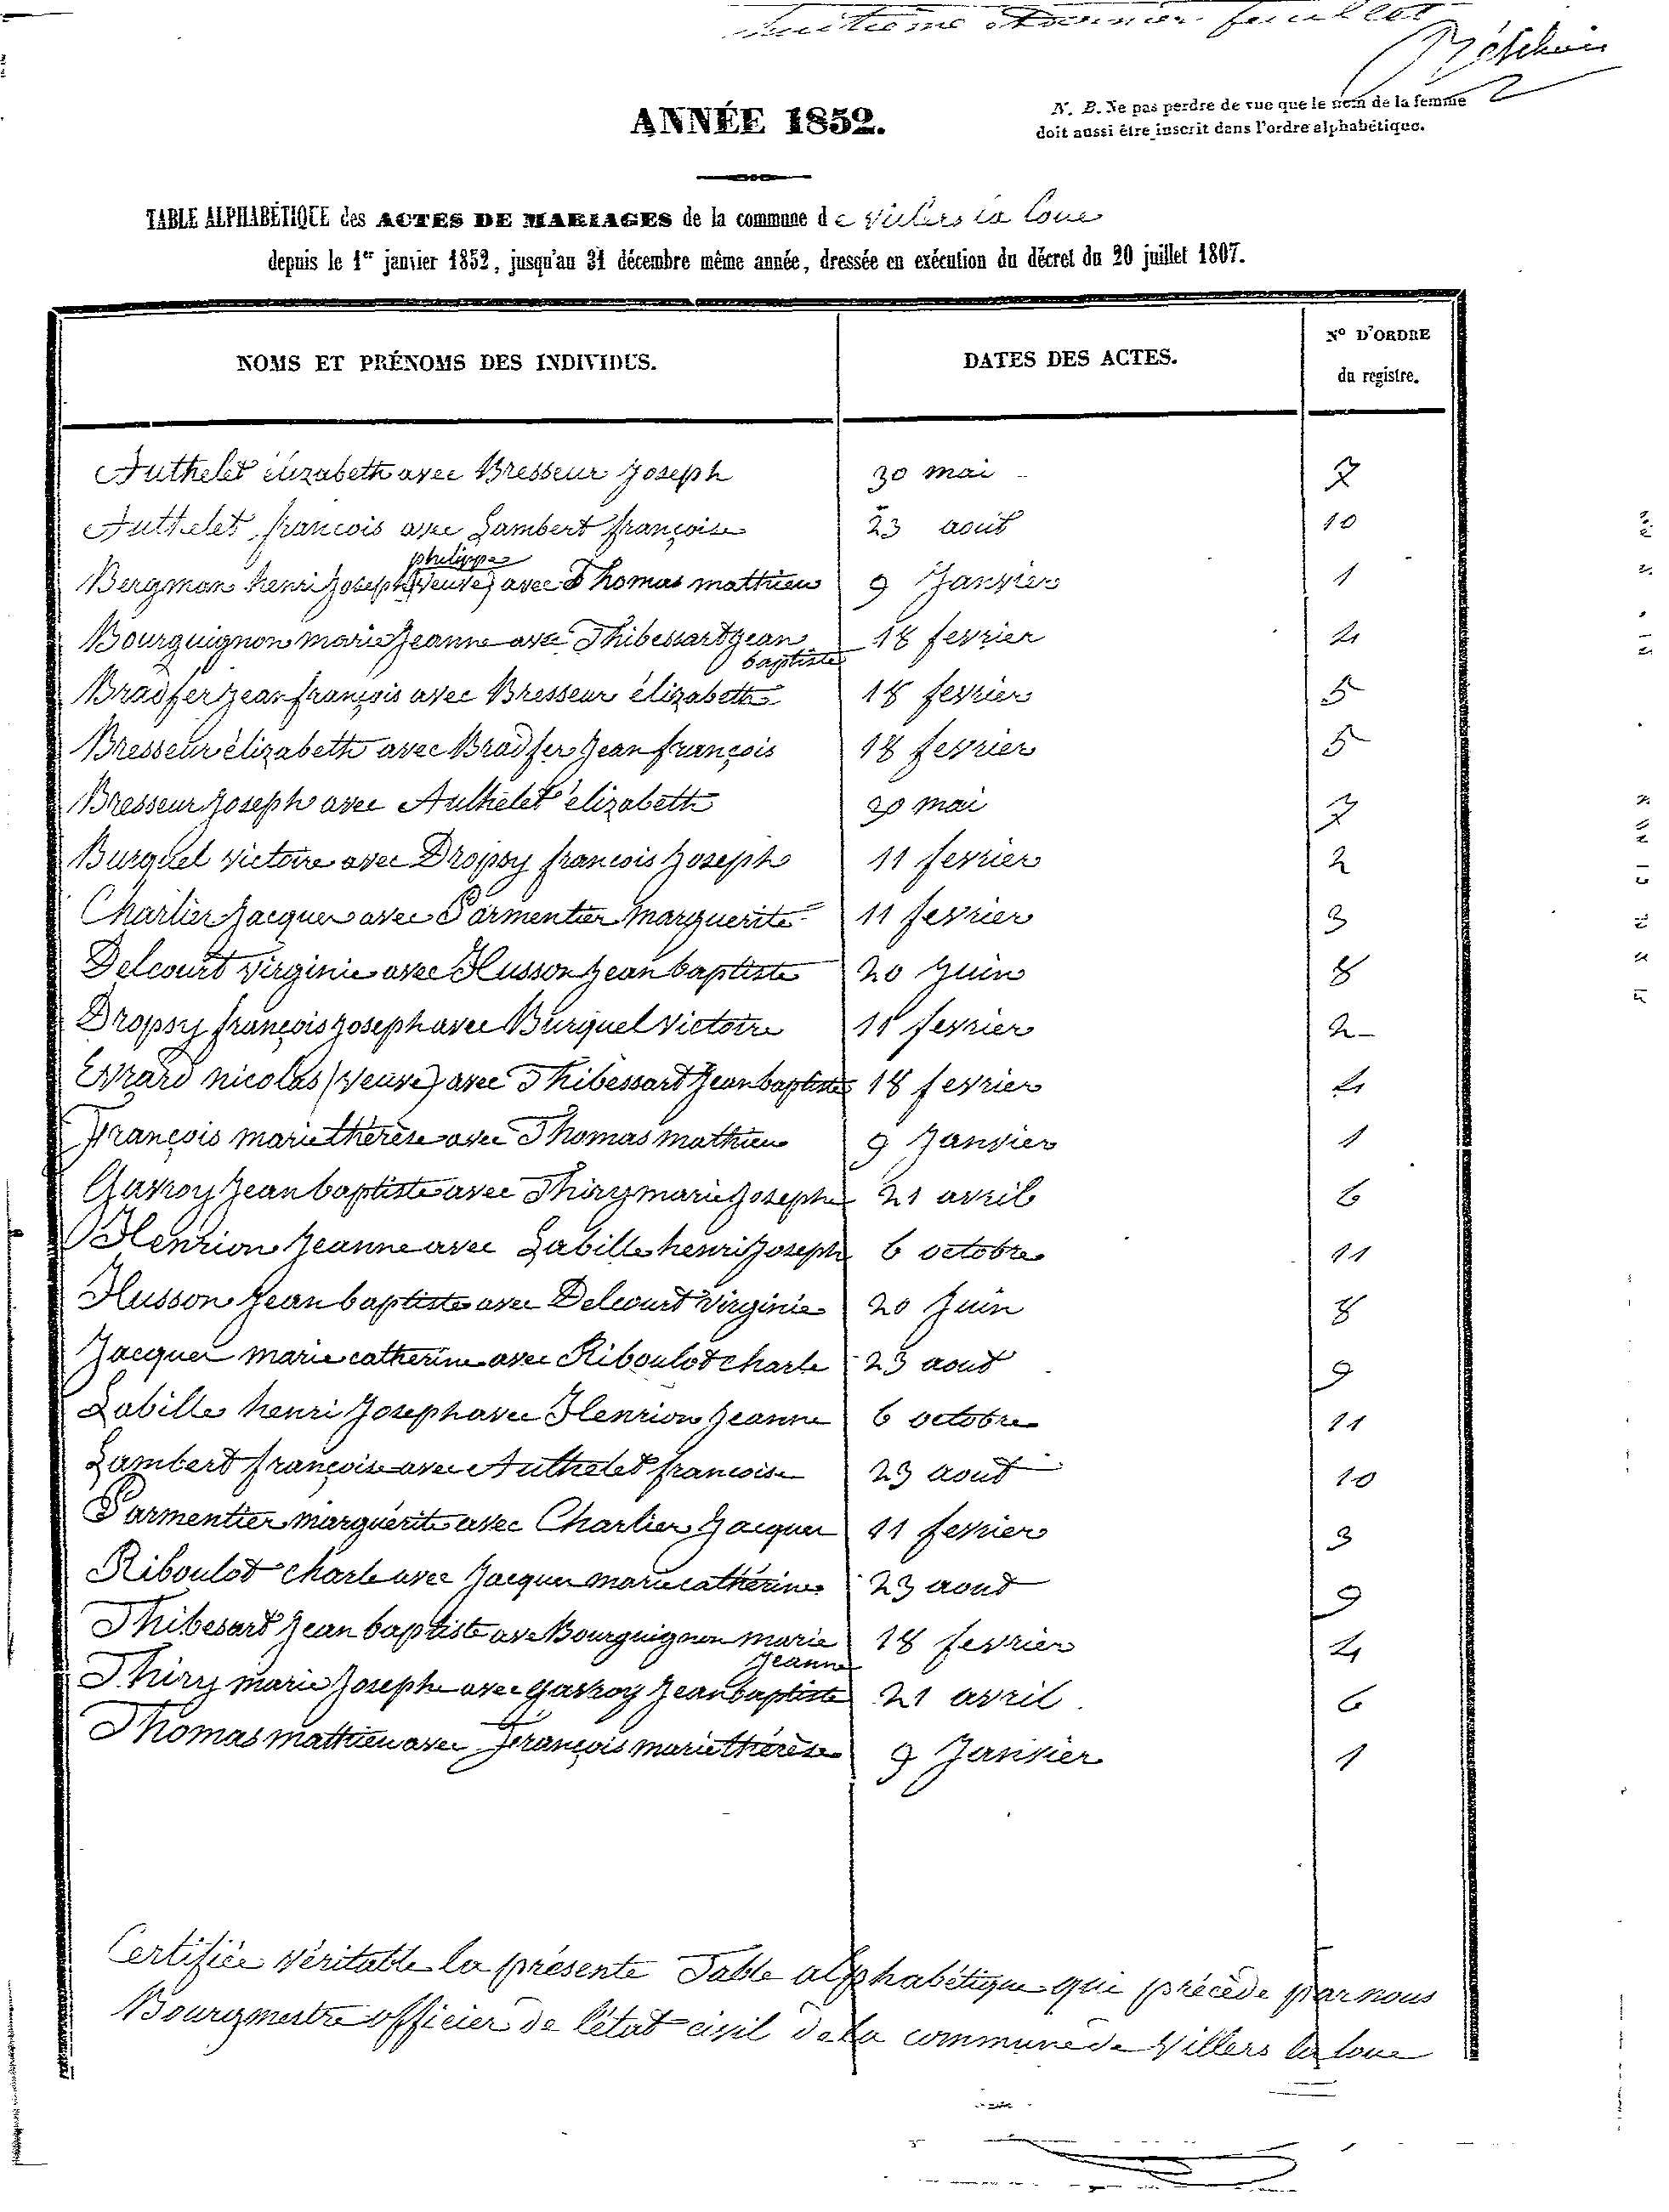 huitième et dernier feuillet
ANNÉE 1852.
N. B. Ne pas perdre de vue que le nom de la femme
doit aussi être inscrit dans l'ordre alphabétique.
TABLE ALPHABÉTIQUE des ACTES DE MARIAGES de la commune de Villers la loue
depuis le 1er janvier 1852, jusqu'au 31 décembre même année, dressée en exécution du décret du 20 juillet 1807.
NOMS ET PRÉNOMS DES INDIVIDUS. DATES DES ACTES. N° D'ORDRE du registre.
Authelet élizabeth avec Bresseur Joseph 30 mai 7
Authelet françois avec Lambert françoise 23 aout 10
philippe
Bergman henri Joseph (veuve) avec Thomas mathieu 9 Janvier 1
Bourguignon marie Jeanne avec Thibessart Jean 18 fevrier 4
baptiste
Bradfer Jean françois avec Bresseur élizabeth 18 fevrier 5
Bresseur élizabeth avec Bradfer Jean françois 18 fevrier 5
Bresseur Joseph avec Authelet élizabeth 30 mai 7
Burquel victoire avec Dropsy francois Joseph 11 fevrier 2
Charlier Jacques avec Parmentier marguerite 11 fevrier 3
Delcourt virginie avec Husson Jean baptiste 20 Juin 8
Dropsy françois Joseph avec Burquel victoire 11 fevrier 2
Evrard nicolas (veuve) avec Thibessart Jean baptiste 18 fevrier 4
François marie thérèse avec Thomas mathieu 9 Janvier 1
Gavroy Jean baptiste avec Thiry marie Josephe 21 avril 6
Henrion Jeanne avec Labille henri Joseph 6 octobre 11
Husson Jean baptiste avec Delcourt virginie 20 Juin 8
Jacques marie catherine avec Riboulot charle 23 aout 9
Labille henri Joseph avec Henrion Jeanne 6 octobre 11
Lambert françoise avec Authelet francoise 23 aout 10
Parmentier marguérite avec Charlier Jacques 11 fevrier 3
Riboulot charle avec Jacques marie cathérine 23 aout 9
Thibesart Jean baptiste ave Bourguignon marie 18 fevrier 4
Jeanne
Thiry marie Josephe avec gavroy Jean baptiste 21 avril 6
Thomas mathieu avec François marie thérèse 9 Janvier 1
Certifiée véritable la présente Table alphabétique qui précède par nous
Bourgmestre officier de l'état civil de la commune de Villers la loue